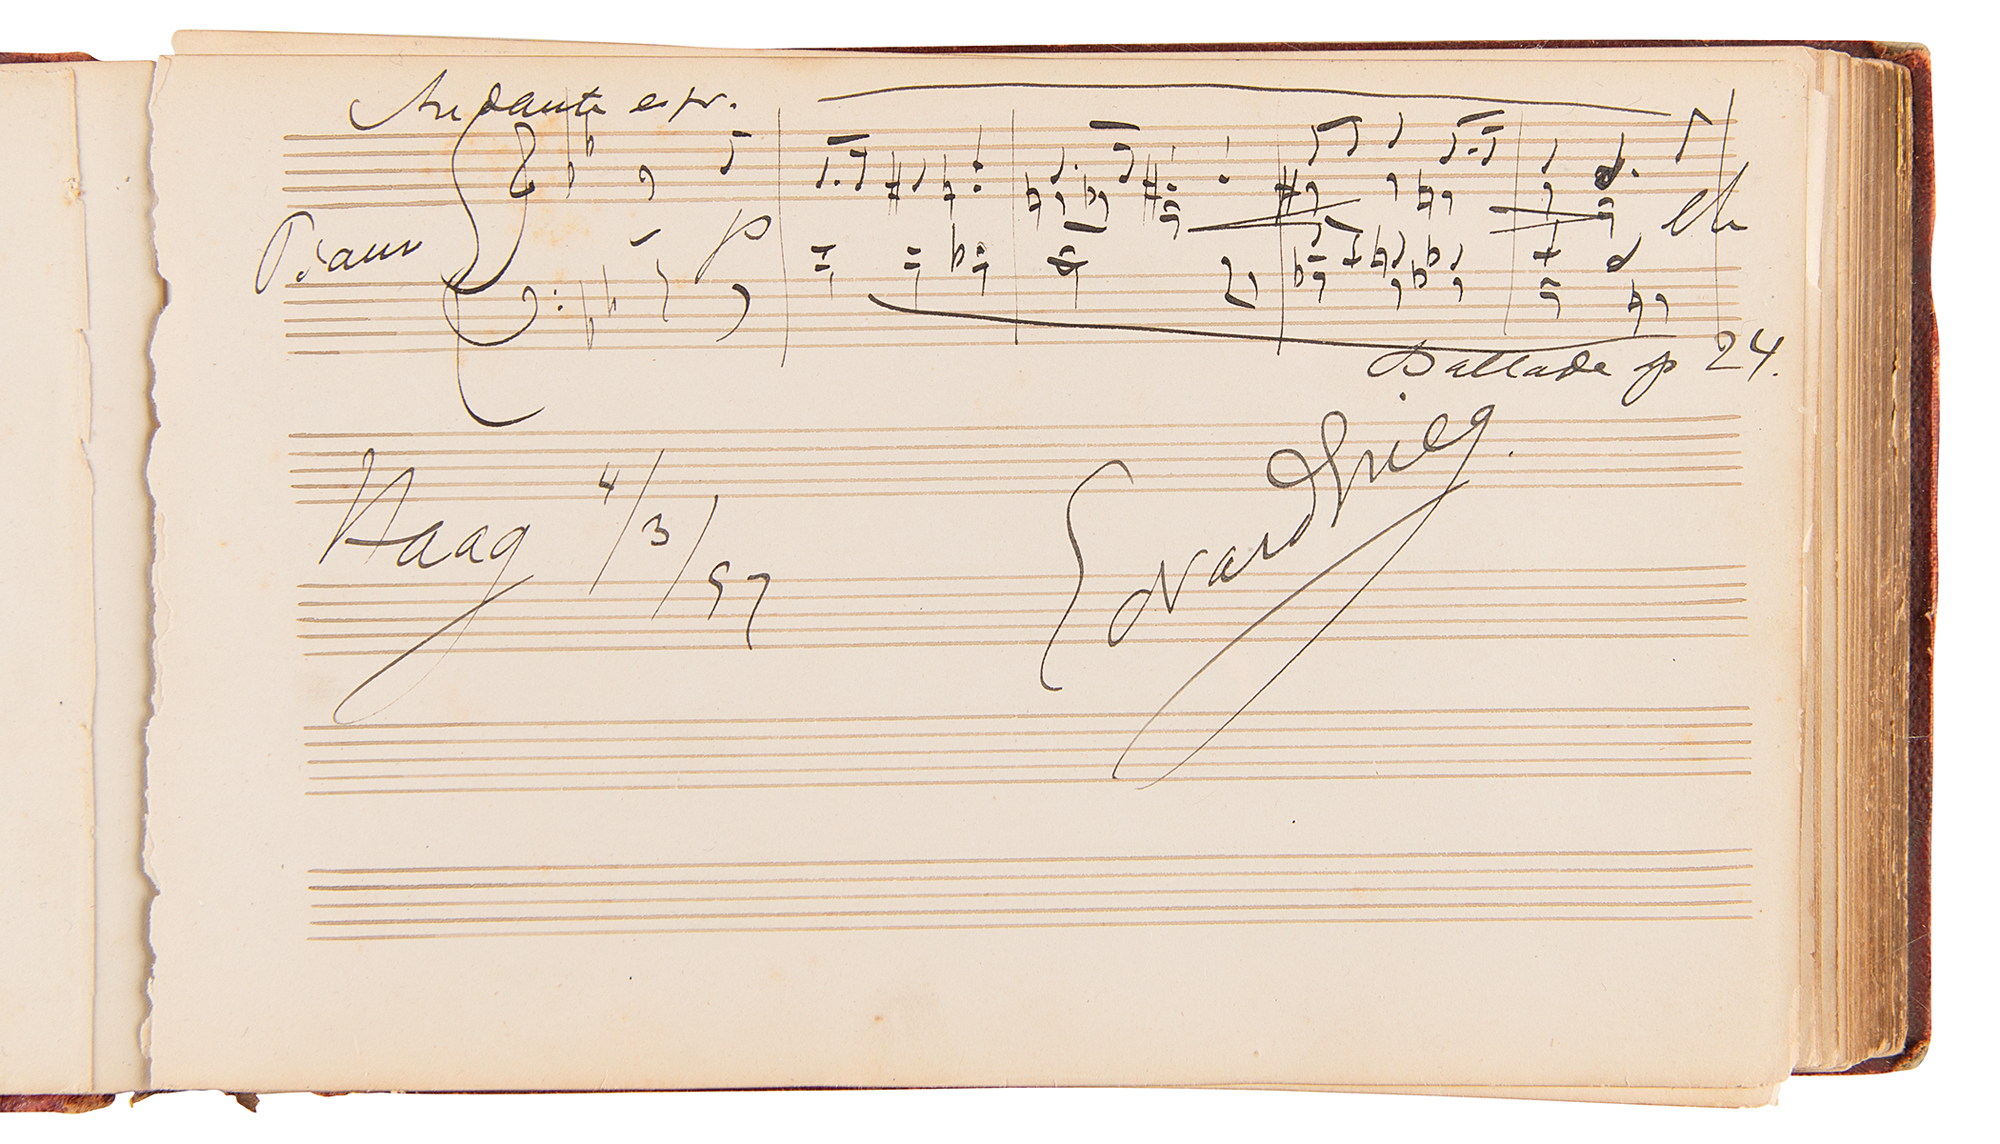 Andante espr.
Piano
p
etc
Ballade op 24.
Haag 4/3/97
Edvard Grieg.